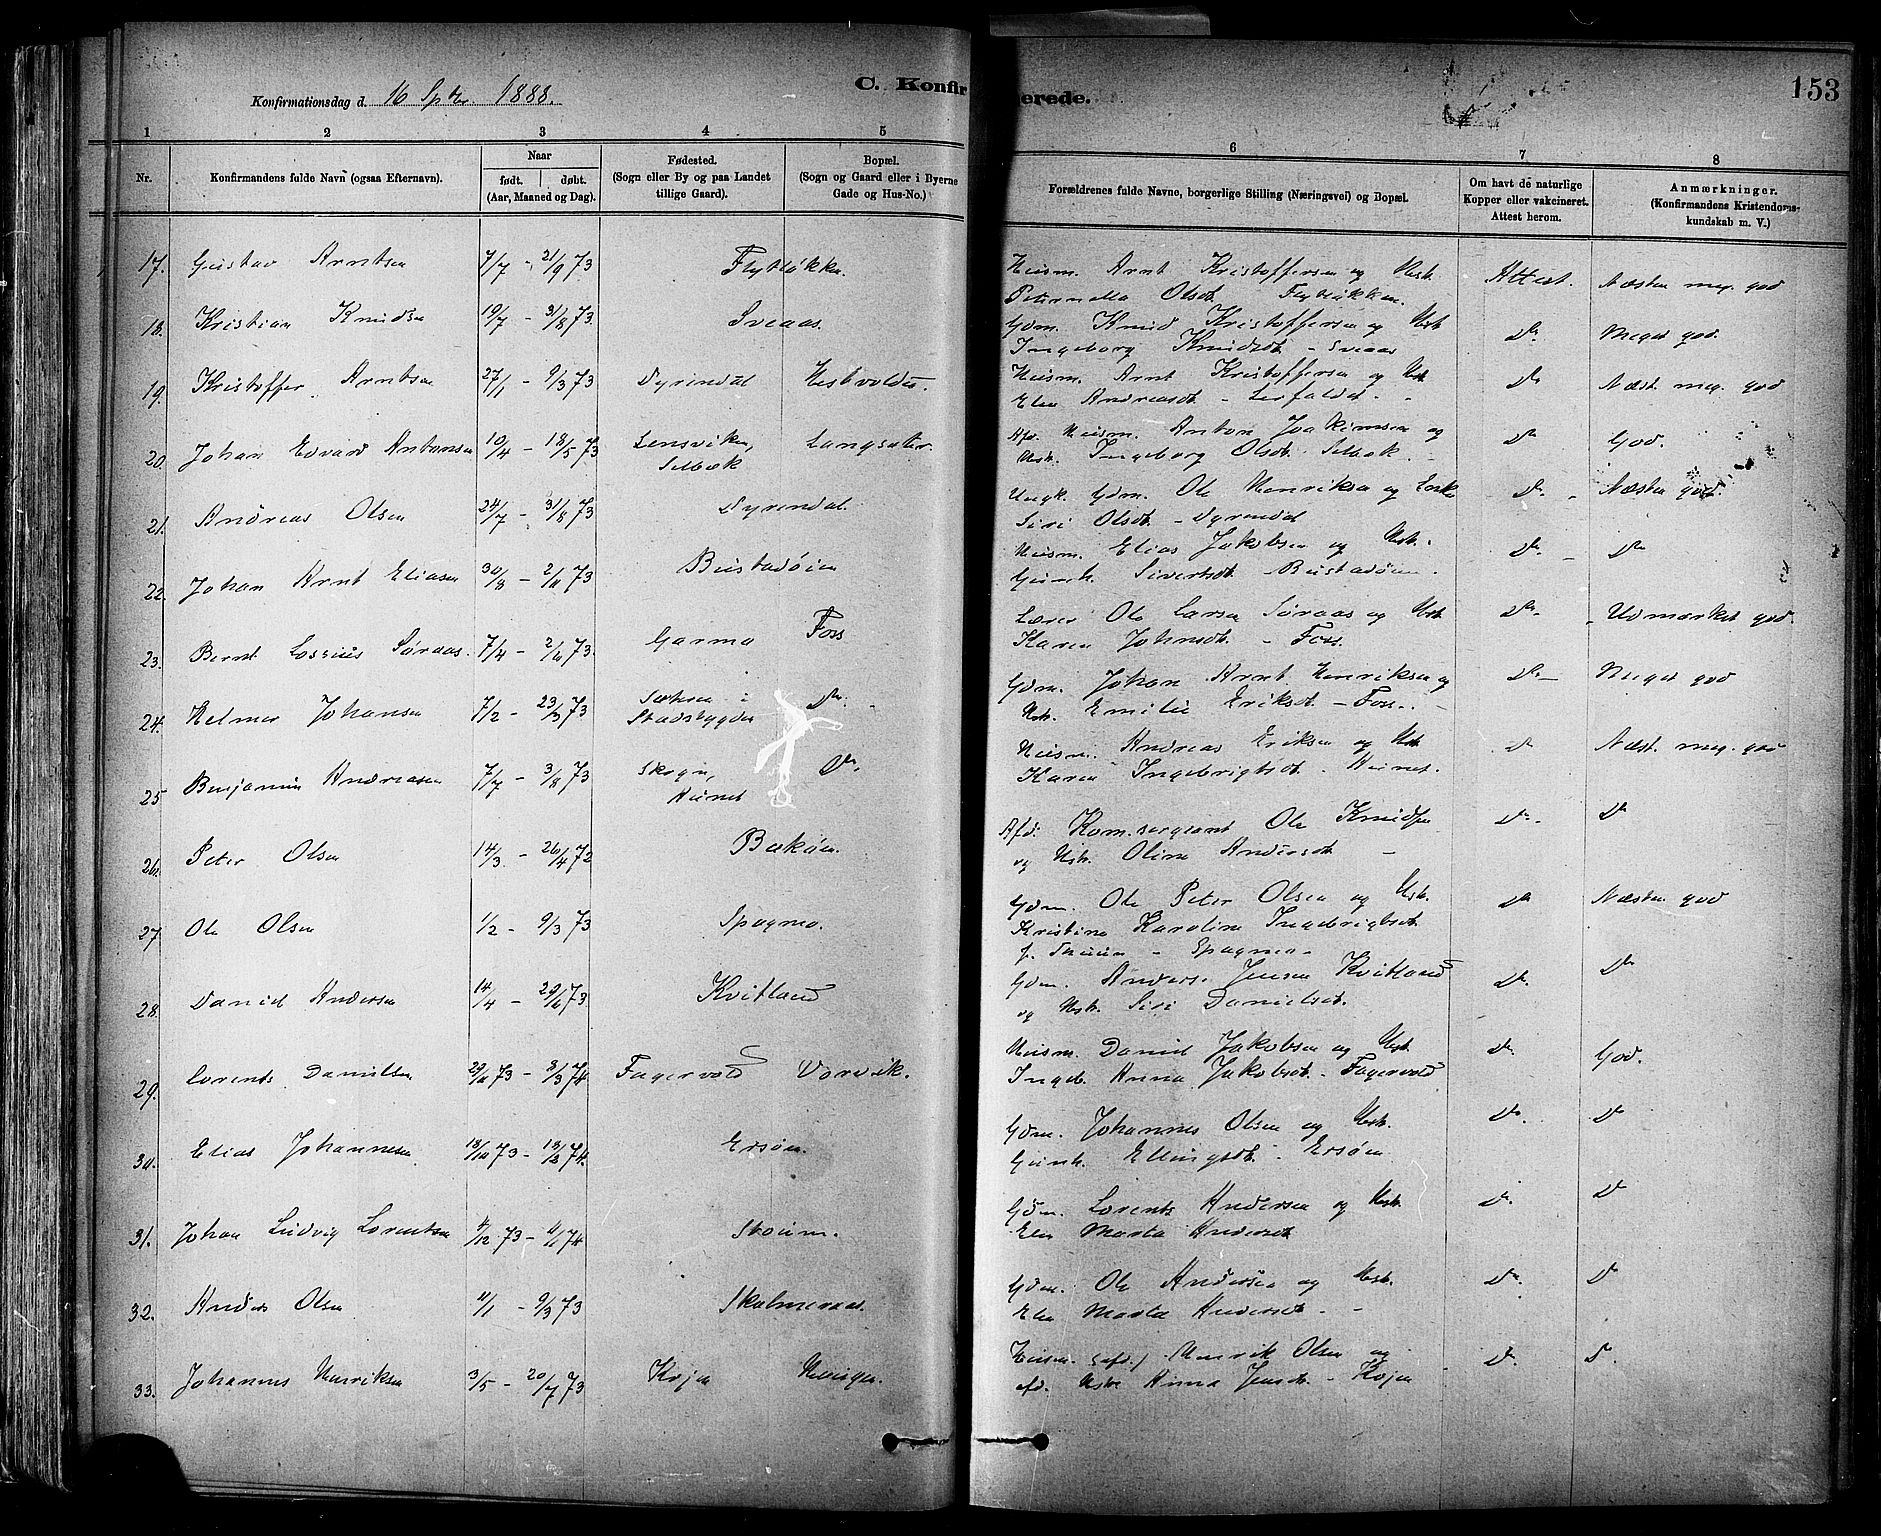 Konfirmationsdag d. 16 Sptbr 1888.
C. Konfirmerede.
153
1 2 3 4 5 6 7 8
Nr.
Konfirmandens fulde Navn (ogsaa Efternavn).
Naar
født. | døbt.
(Aar, Maaned og Dag).
Fødested.
(Sogn eller By og paa Landet
tillige Gaard).
Bopæl.
(Sogn og Gaard eller i Byerne
Gade og Hus-No.)
Forældrenes fulde Navne, borgerlige Stilling (Næringsvei) og Bopæl.
Om havt de naturlige
Kopper eller vakcineret.
Attest herom.
Anmærkninger.
(Konfirmandens Kristendoms-
kundskab m. V.)
17. Gustav Arntsen 7/7 - 21/9 73 Flytløkken. Husm. Arnt Kristoffersen og Hstr. Attest. Næsten meg. god
Peternella Olsdt. Flytløkken.
18. Kristian Knudsen 19/7 - 31/8 73 Sveaas. Gdm. Knud Kristoffersen og Hstr. Do. Meget god.
Ingeborg Knudsdt. - Sveaas
19. Kristoffer Arntsen 27/1 - 9/3 73 Dyrendal Husm. Arnt Kristoffersen og Hstr. Do Næst. meg. god
Elen Andreasdt. - Lerfaldet.
20. Johan Edvard Antonsen 10/4 - 18/5 73 Lensviken, Langsæter. Afd. Husm. Anton Joakimsen og Do God.
Selbæk Hstr. Ingeborg Olsdt. Selbæk.
21. Andreas Olsen 24/7 - 31/8 73 Dyrendal Ungk. Gdm. Ole Henriksen og Enke Do. Næsten god.
Siri Olsdt. - Dyrendal
22. Johan Arnt Eliasen Bustadøien Husm. Elias Jakobsen og Hstr. Do. Do
Gunh. Sivertsdt. Bustadøien.
23. Bernt Lossius Søraas. 7/4 - 2/6 73. Garmo Foss Lærer Ole Larsen Søraas og Hstr Do. Udmærket god
Karen Johnsdt. - Foss.
24. Helmer Johansen 7/2 - 23/3 73 i Do. Gdm. Johan Arnt Henriksen og Do Meget god
Stadsbygden Hstr. Emilie Eriksdt. - Foss.
25 Benjamin Andreasen 7/7 - 3/8 73 Skogn, Do. Husm. Andreas Eriksen og Hstr. Do Næst. meg. god
Karen Ingebrigtsdt.
26. Peter Olsen 14/3 - 26/4 72 Bækøien. Afd. Kom.sergeant Ole Knudsen Do. Do
og Hstr. Oline Andersdt.
27. Ole Olsen 1/2 - 9/3 73 Spogmo. Gdm. Ole Peter Olsen og Hstr. Do Næsten god
Kristine Karoline Ingebrigtsdt.
28. Daniel Andersen 14/4 - 29/6 73 Kvitland Gdm. Anders Jensen Kvitland Do. Do
og Hstr. Siri Danielsdt.
29. Lorents Danielsen Fagervold Vorvik. Husm. Daniel Jakobsen og Hstr Do. God.
Ingeb. Anna Jakobsdt. Fagervold
30. Elias Johannesen Ersøien. Gdm. Johannes Olsen og Hstr. Do. Do
Gunh. Ellingsdt. Ersøien
31. Johan Ludvig Lorentsen Gdm. Lorents Andersen og Hstr. Do. Do
Elen Marta Andersdt
32. Anders Olsen 11/1 - 9/3 73 Skalmeraas. Gdm. Ole Andersen og Hstr. Do. Do
Elen Marta Andersdt.
33. Johannes Henriksen 3/5 - 20/7 73 Koja Husm. (afd.) Henrik Olsen og Do. Do.
afd. Hstr Anna Jensdt. - Koja